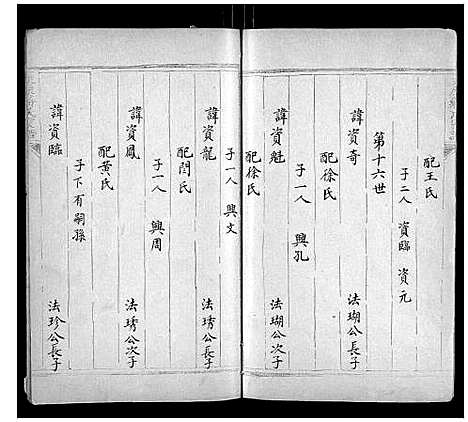 配王氏
子二人 資臨 資元
第十六世
諱資奇 法瑚公長子
配徐氏
子一人 興孔
諱資魁 法瑚公次子
配徐氏
子一人 興文
諱資龍 法琇公長子
配閆氏
子一人 興周
諱資鳳 法琇公次子
配黄氏
子下有嗣孫
諱資臨 法珍公長子